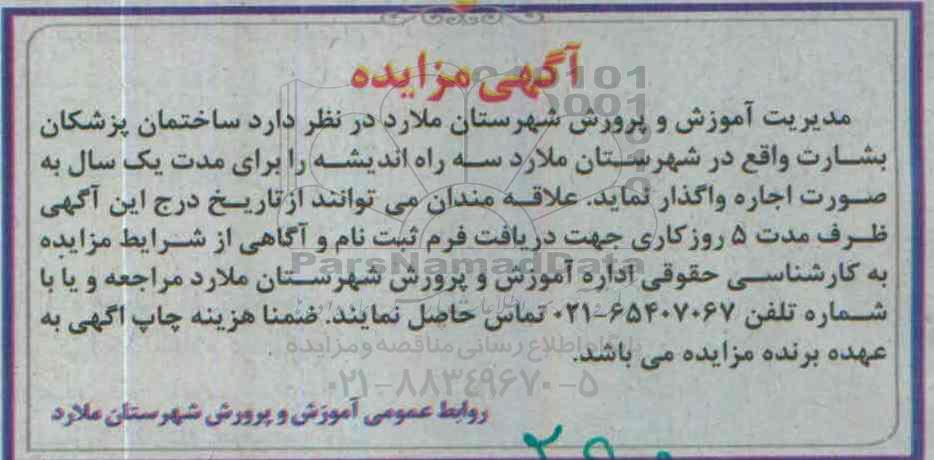 آگهی مزایده
مدیریت آموزش و پرورش شهرستان ملارد در نظر دارد ساختمان پزشکان
بشارت واقع در شهرستان ملارد سه راه اندیشه را برای مدت یک سال به
صورت اجاره واگذار نماید. علاقه مندان می توانند از تاریخ درج این آگهی
ظرف مدت ۵ روز کاری جهت دریافت فرم ثبت نام و آگاهی از شرایط مزایده
ParsNamadData
به کارشناسی حقوقی اداره آموزش و پرورش شهرستان ملارد مراجعه و یا با
شماره تلفن ۶۵۴۰۷۰۶۷-۰۲۱ تماس حاصل نمایند. ضمنا هزینه چاپ اگهی به
عهده برنده مزایده می باشد.
پایگاه اطلاع رسانی مناقصه و مزایده
۰۲۱-۸۸۳۴۹۶۷۰-۵
روابط عمومی آموزش و پرورش شهرستان ملارد